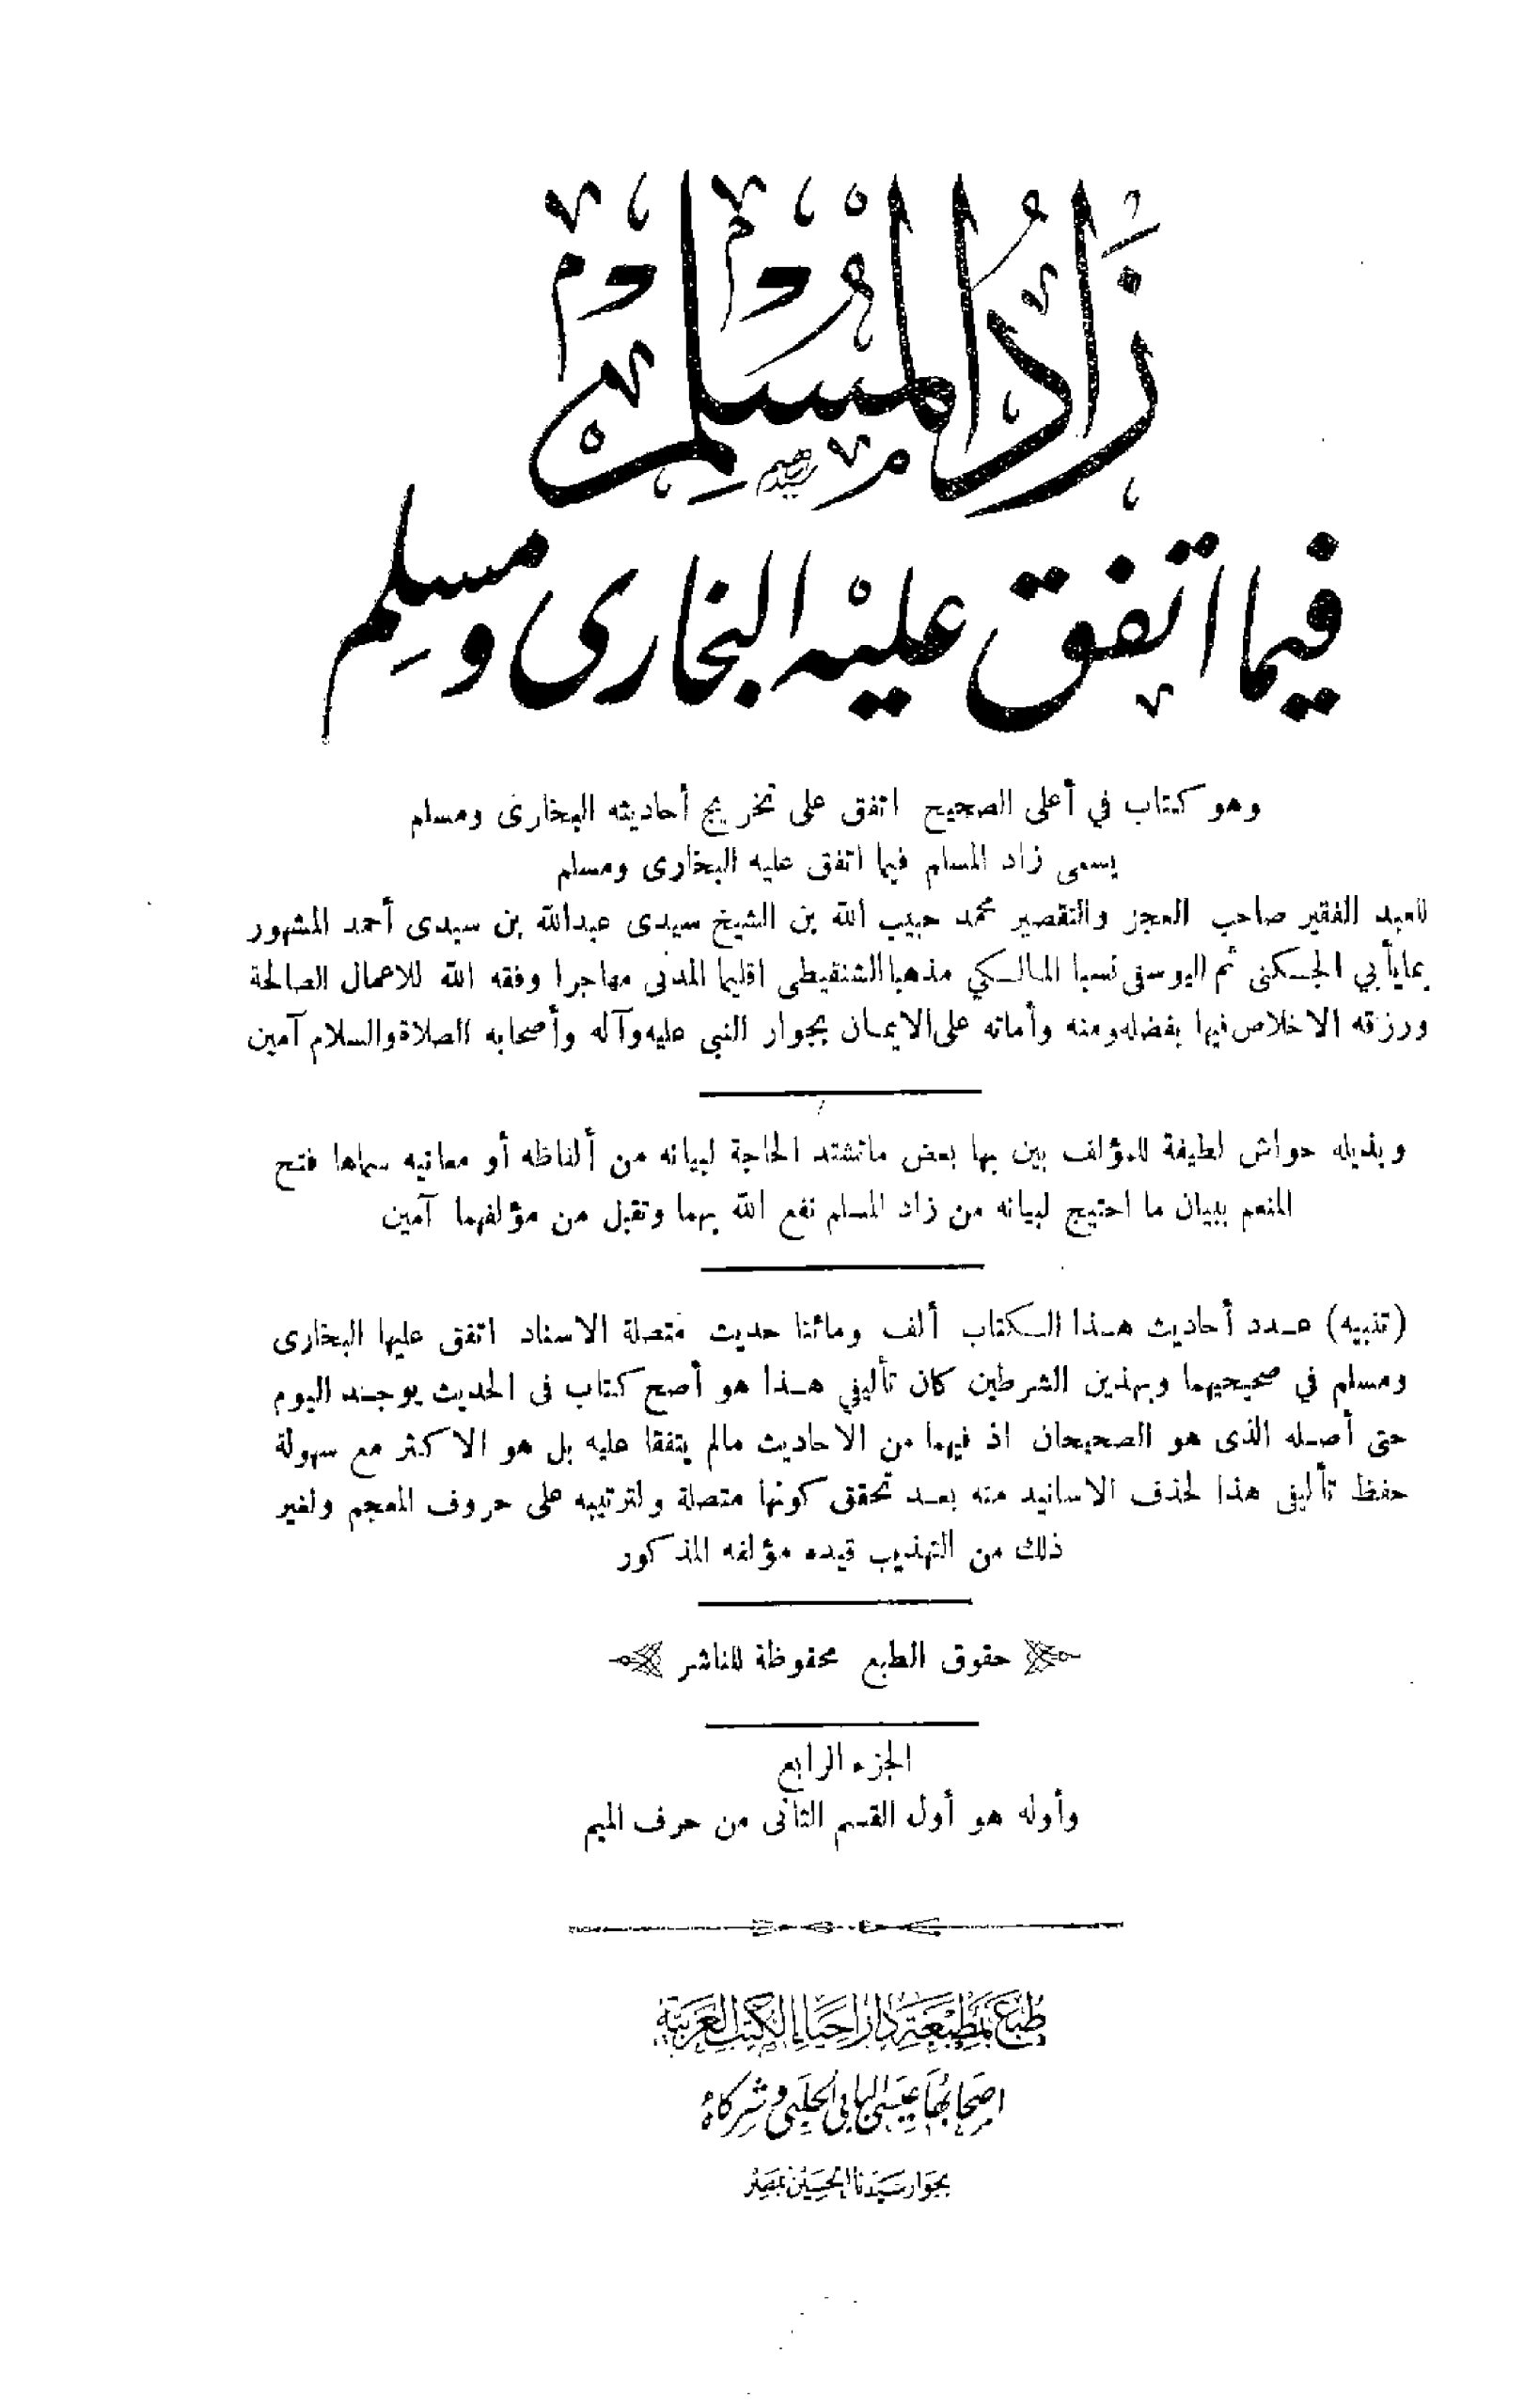 زَادُ الْمُسْلِمِ
فيما اتفق عليه البخارى ومسلم
وهو كتاب في أعلى الصحيح اتفق على تخريج أحاديثه البخارى ومسلم
يسمى زاد المسلم فيما اتفق عليه البخارى ومسلم
للعبد الفقير صاحب العجز والتقصير محمد حبيب الله بن الشيخ سيدى عبدالله بن سيدى أحمد المشهور
بمايأبي الجـكنى ثم اليوسفى نسبا المالـكي مذهبا الشنقيطى اقليما المدنى مهاجرا وفقه الله للاعمال الصالحة
ورزقه الاخلاص فيها بفضله ومنه وأماته على الايمـان بجوار النبي عليه وآله وأصحابه الصلاة والسلام آمين
وبذيله حواش لطيفة للمؤلف بين بها بعض ماتشتد الحاجة لبيانه من ألفاظه أو معانيه سماها فتح
المنعم ببيان ما احتيج لبيانه من زاد المسلم نفع الله بهما وتقبل من مؤلفهما آمين
(تنبيه) عـدد أحاديث هـذا الـكتاب ألف ومائتا حديث متصلة الاسناد اتفق عليها البخارى
ومسلم في صحيحيهما وبهذين الشرطين كان تأليفي هـذا هو أصح كتاب فى الحديث يوجـد اليوم
حتى أصـله الذى هو الصحيحان اذ فيهما من الاحاديث مالم يتفقا عليه بل هو الاكثر مع سهولة
حفظ تأليفى هذا لحذف الاسانيد منه بعـد تحقق كونها متصلة ولترتيبه على حروف المعجم ولغير
ذلك من التهذيب قيده مؤلفه المذكور
حقوق الطبع محفوظة للناشر
الجزء الرابع
وأوله هو أول القسم الثانى من حرف الميم
طبع بمطبعة دار احياء الكتب العربية
اصحابها عيسى البابى الحلبى وشركاه
بجوار سيدنا الحسين بمصر